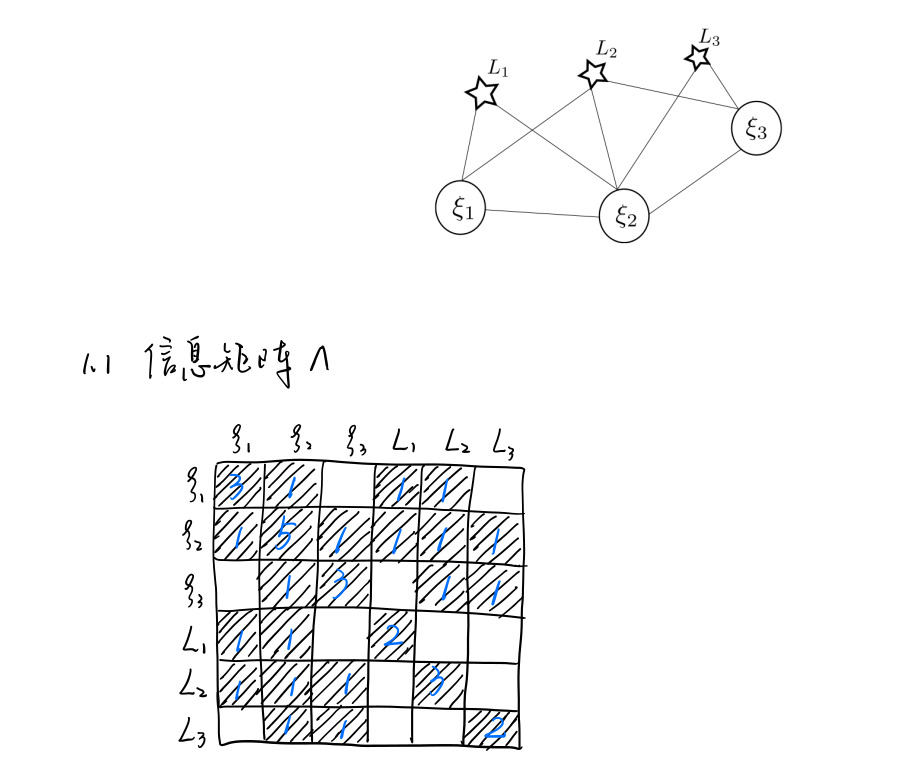 L₃
L₂
L₁
ξ₃
ξ₁ ξ₂
1.1 信息矩阵 Λ
ξ₁ ξ₂ ξ₃ L₁ L₂ L₃
ξ₁ 3 1 1 1
ξ₂ 1 5 1 1 1 1
ξ₃ 1 3 1 1
L₁ 1 1 2
L₂ 1 1 1 3
L₃ 1 1 2